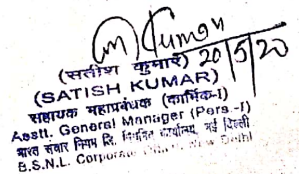 Kumar
20/5/20
(सतीश कुमार)
(SATISH KUMAR)
सहायक महाप्रबंधक (कार्मिक-I)
Asstt. General Manager (Pers.-I)
भारत संचार निगम लि. निगमित कार्यालय, नई दिल्ली
B.S.N.L. Corporate Office, New Delhi